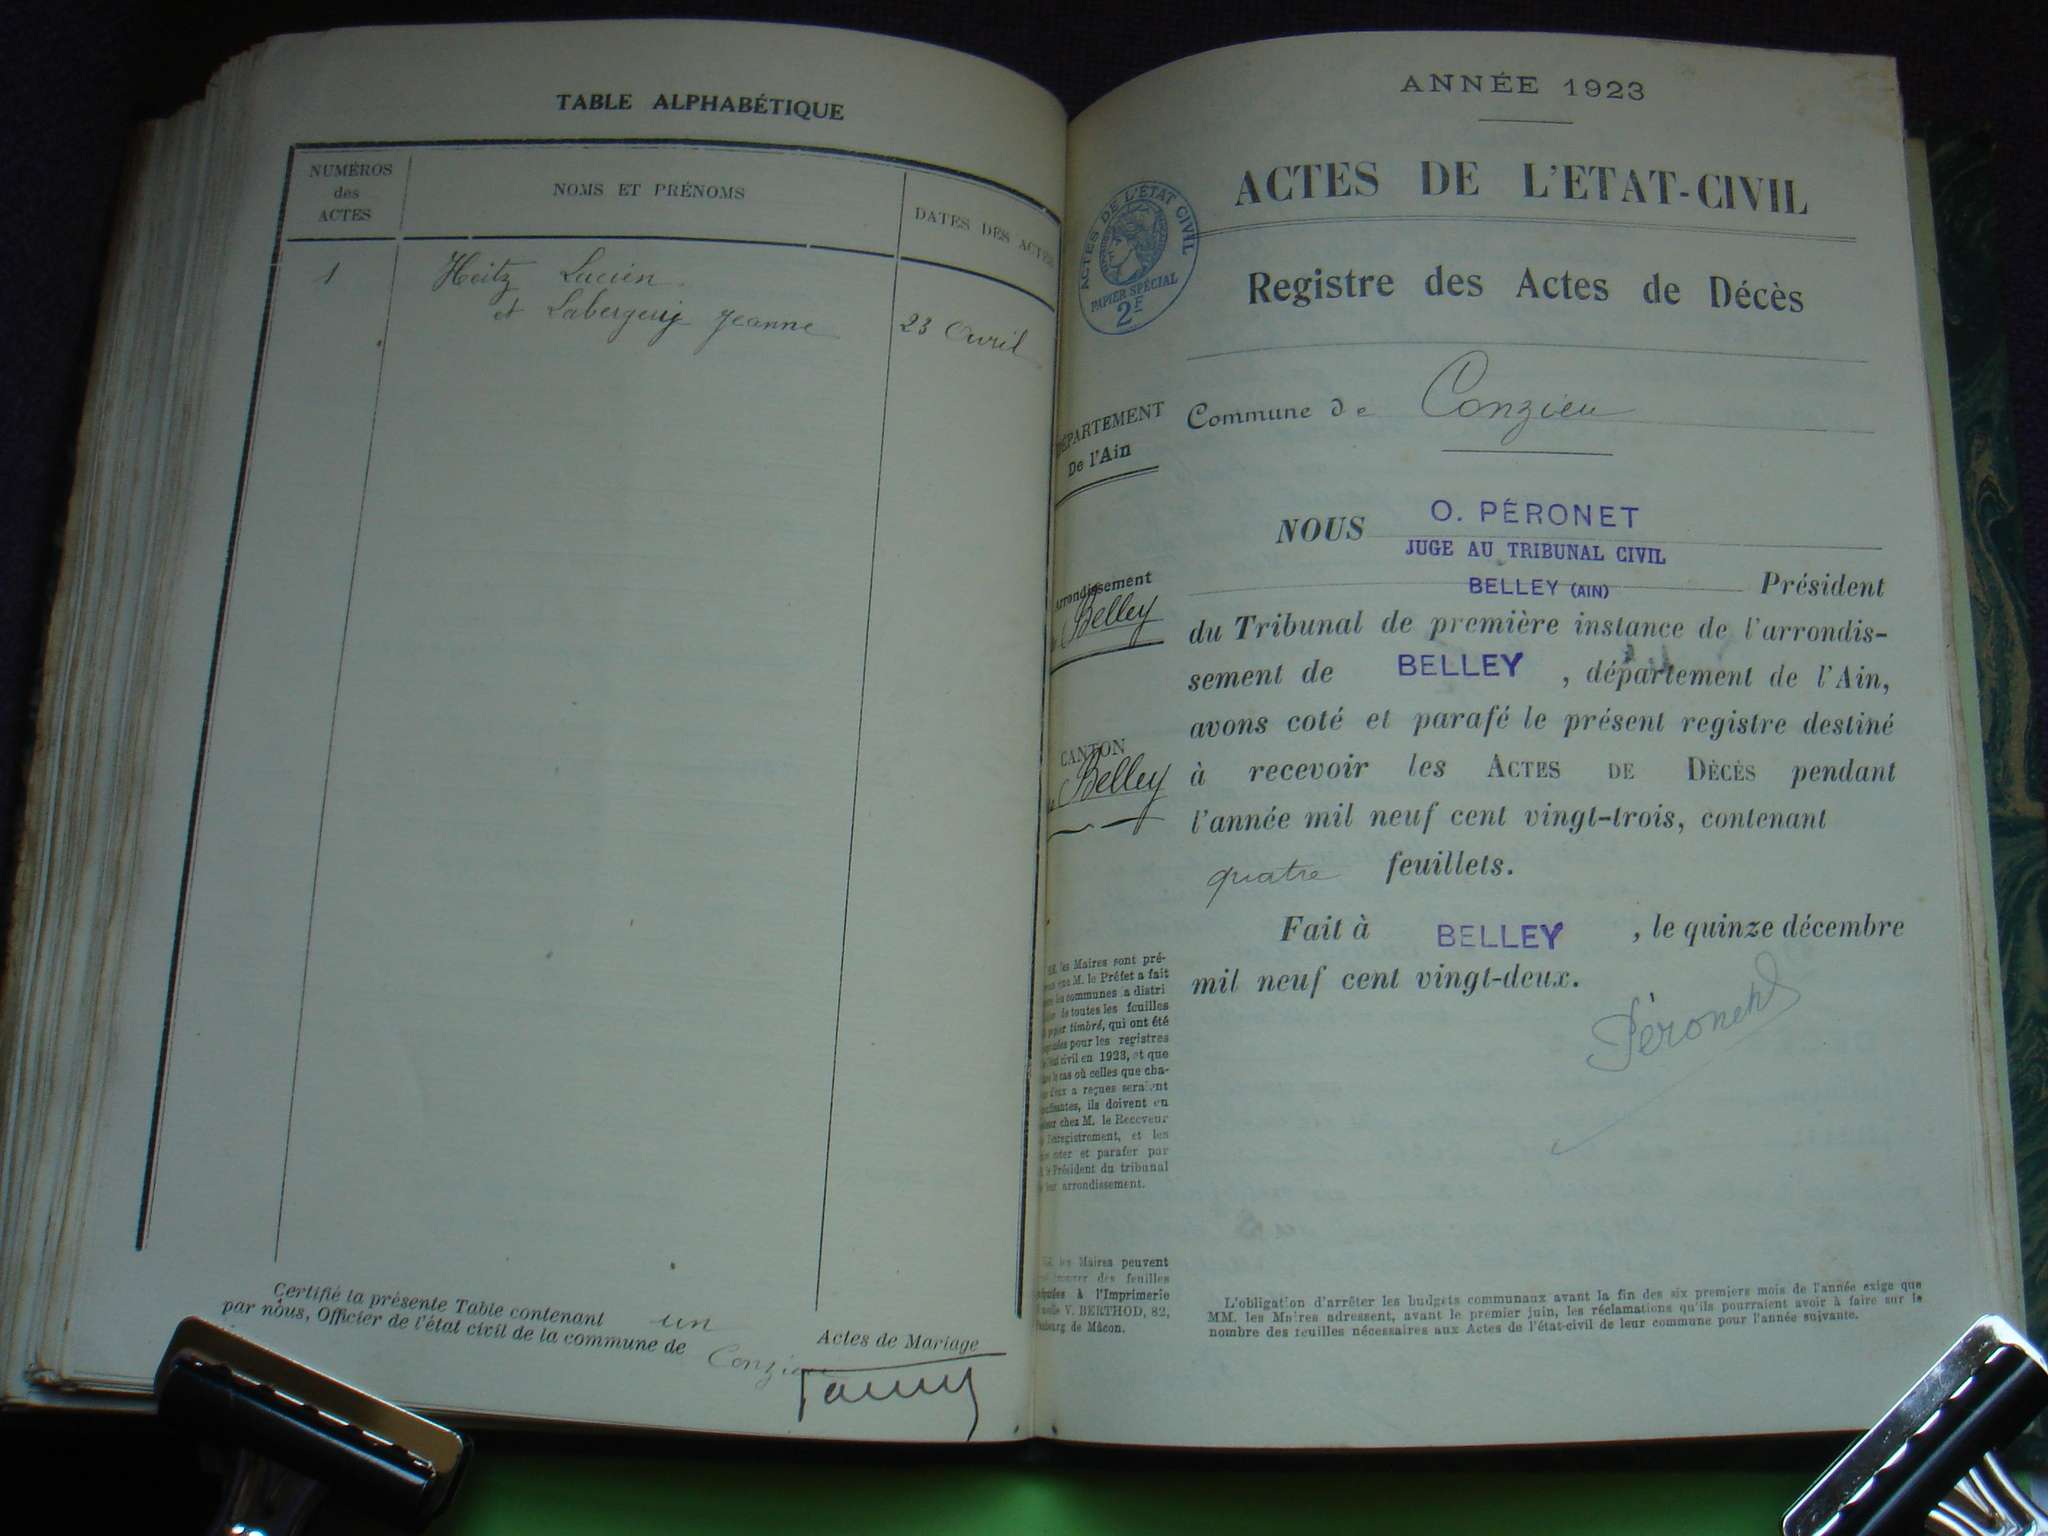 TABLE ALPHABÉTIQUE
NUMÉROS
des
ACTES
NOMS ET PRÉNOMS
DATES DES ACTES
1
Heitz Lucien
et Labergerij Jeanne
23 Avril
Certifié la présente Table contenant un Actes de Mariage
par nous, Officier de l'état civil de la commune de Conzieu
ANNÉE 1923
ACTES DE L'ETAT-CIVIL
ACTES DE L'ÉTAT CIVIL
PAPIER SPÉCIAL
2F
Registre des Actes de Décès
DÉPARTEMENT
De l'Ain
Commune de Conzieu
Arrondissement
Belley
CANTON
Belley
NOUS O. PÉRONET
JUGE AU TRIBUNAL CIVIL
BELLEY (AIN) Président
du Tribunal de première instance de l'arrondis-
sement de BELLEY, département de l'Ain,
avons coté et parafé le présent registre destiné
à recevoir les ACTES DE DÉCÈS pendant
l'année mil neuf cent vingt-trois, contenant
quatre feuillets.
Fait à BELLEY, le quinze décembre
mil neuf cent vingt-deux.
Péronet
MM. les Maires sont pré-
que M. le Préfet a fait
les communes a distri
de toutes les feuilles
papier timbré, qui ont été
pour les registres
civil en 1923, et que
le cas où celles que cha-
d'eux a reçues seraient
ils doivent en
chez M. le Receveur
l'enregistrement, et les
coter et parafer par
le Président du tribunal
leur arrondissement.
MM. les Maires peuvent
des feuilles
à l'Imprimerie
V. BERTHOD, 82,
de Mâcon.
L'obligation d'arrêter les budgets communaux avant la fin des six premiers mois de l'année exige que
MM. les Maires adressent, avant le premier juin, les réclamations qu'ils pourraient avoir à faire sur le
nombre des feuilles nécessaires aux Actes de l'état-civil de leur commune pour l'année suivante.